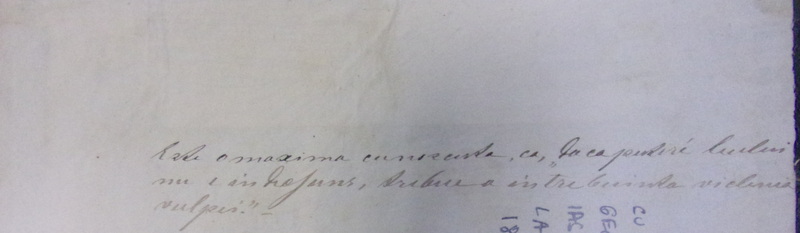 Este o maxima cunoscuta, ca, "daca putere leului
nu e indestuns, trebue a intrebuinta viclenia
vulpei." –
CU
GE
IAS
LA
18